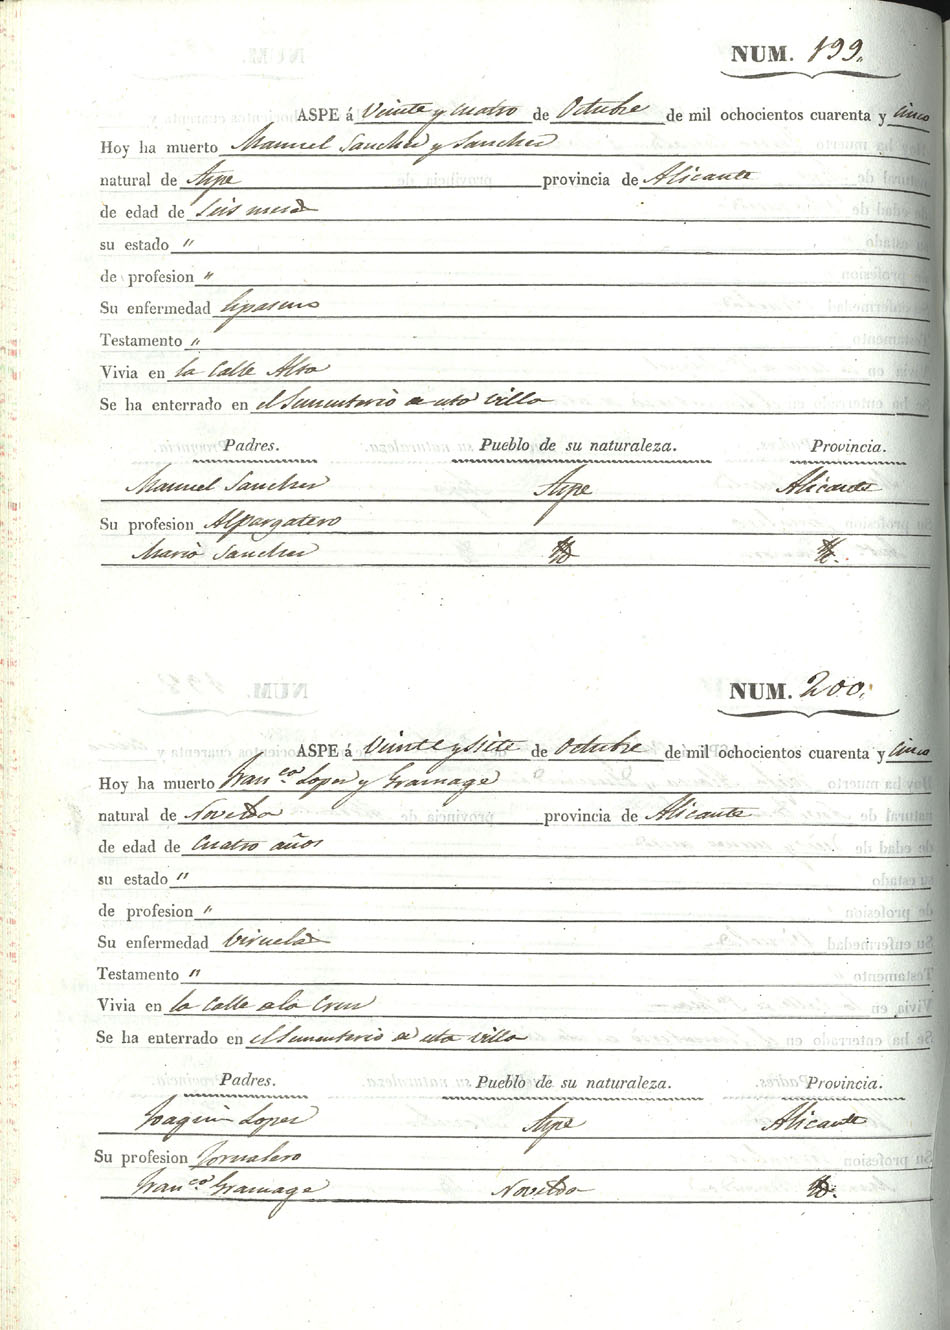 NUM. 199.
ASPE á Veinte y cuatro de Octubre de mil ochocientos cuarenta y cinco
Hoy ha muerto Manuel Sanchez y Sanchez
natural de Aspe provincia de Alicante
de edad de Seis meses
su estado "
de profesion "
Su enfermedad
Testamento "
Vivia en la Calle Alta
Se ha enterrado en el Sementerio de esta Villa
Padres. Pueblo de su naturaleza. Provincia.
Manuel Sanchez Aspe Alicante
Su profesion Alpargatero
Maria Sanchez Id Id.
NUM. 200.
ASPE á Veinte y Siete de Octubre de mil ochocientos cuarenta y cinco
Hoy ha muerto Franco. Lopez y Gramage
natural de Novelda provincia de Alicante
de edad de Cuatro años
su estado "
de profesion "
Su enfermedad Viruelas
Testamento "
Vivia en la Calle de la Cruz
Se ha enterrado en el Sementerio de esta Villa
Padres. Pueblo de su naturaleza. Provincia.
Joaquin Lopez Aspe Alicante
Su profesion Jornalero
Franca. Gramage Novelda Id.